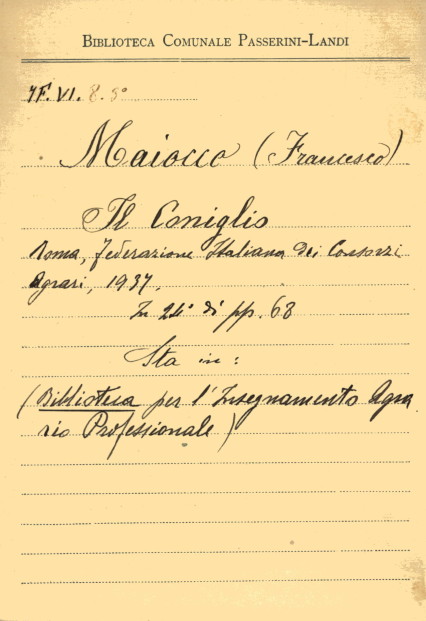 BIBLIOTECA COMUNALE PASSERINI-LANDI
7F.VI. 8. 50
Maiocco (Francesco)
Il Coniglio
Roma, Federazione Italiana dei Consorzi
Agrari, 1937.
In 24° di pp. 68
Sta in:
(Biblioteca per l'Insegnamento Agra
rio Professionale)